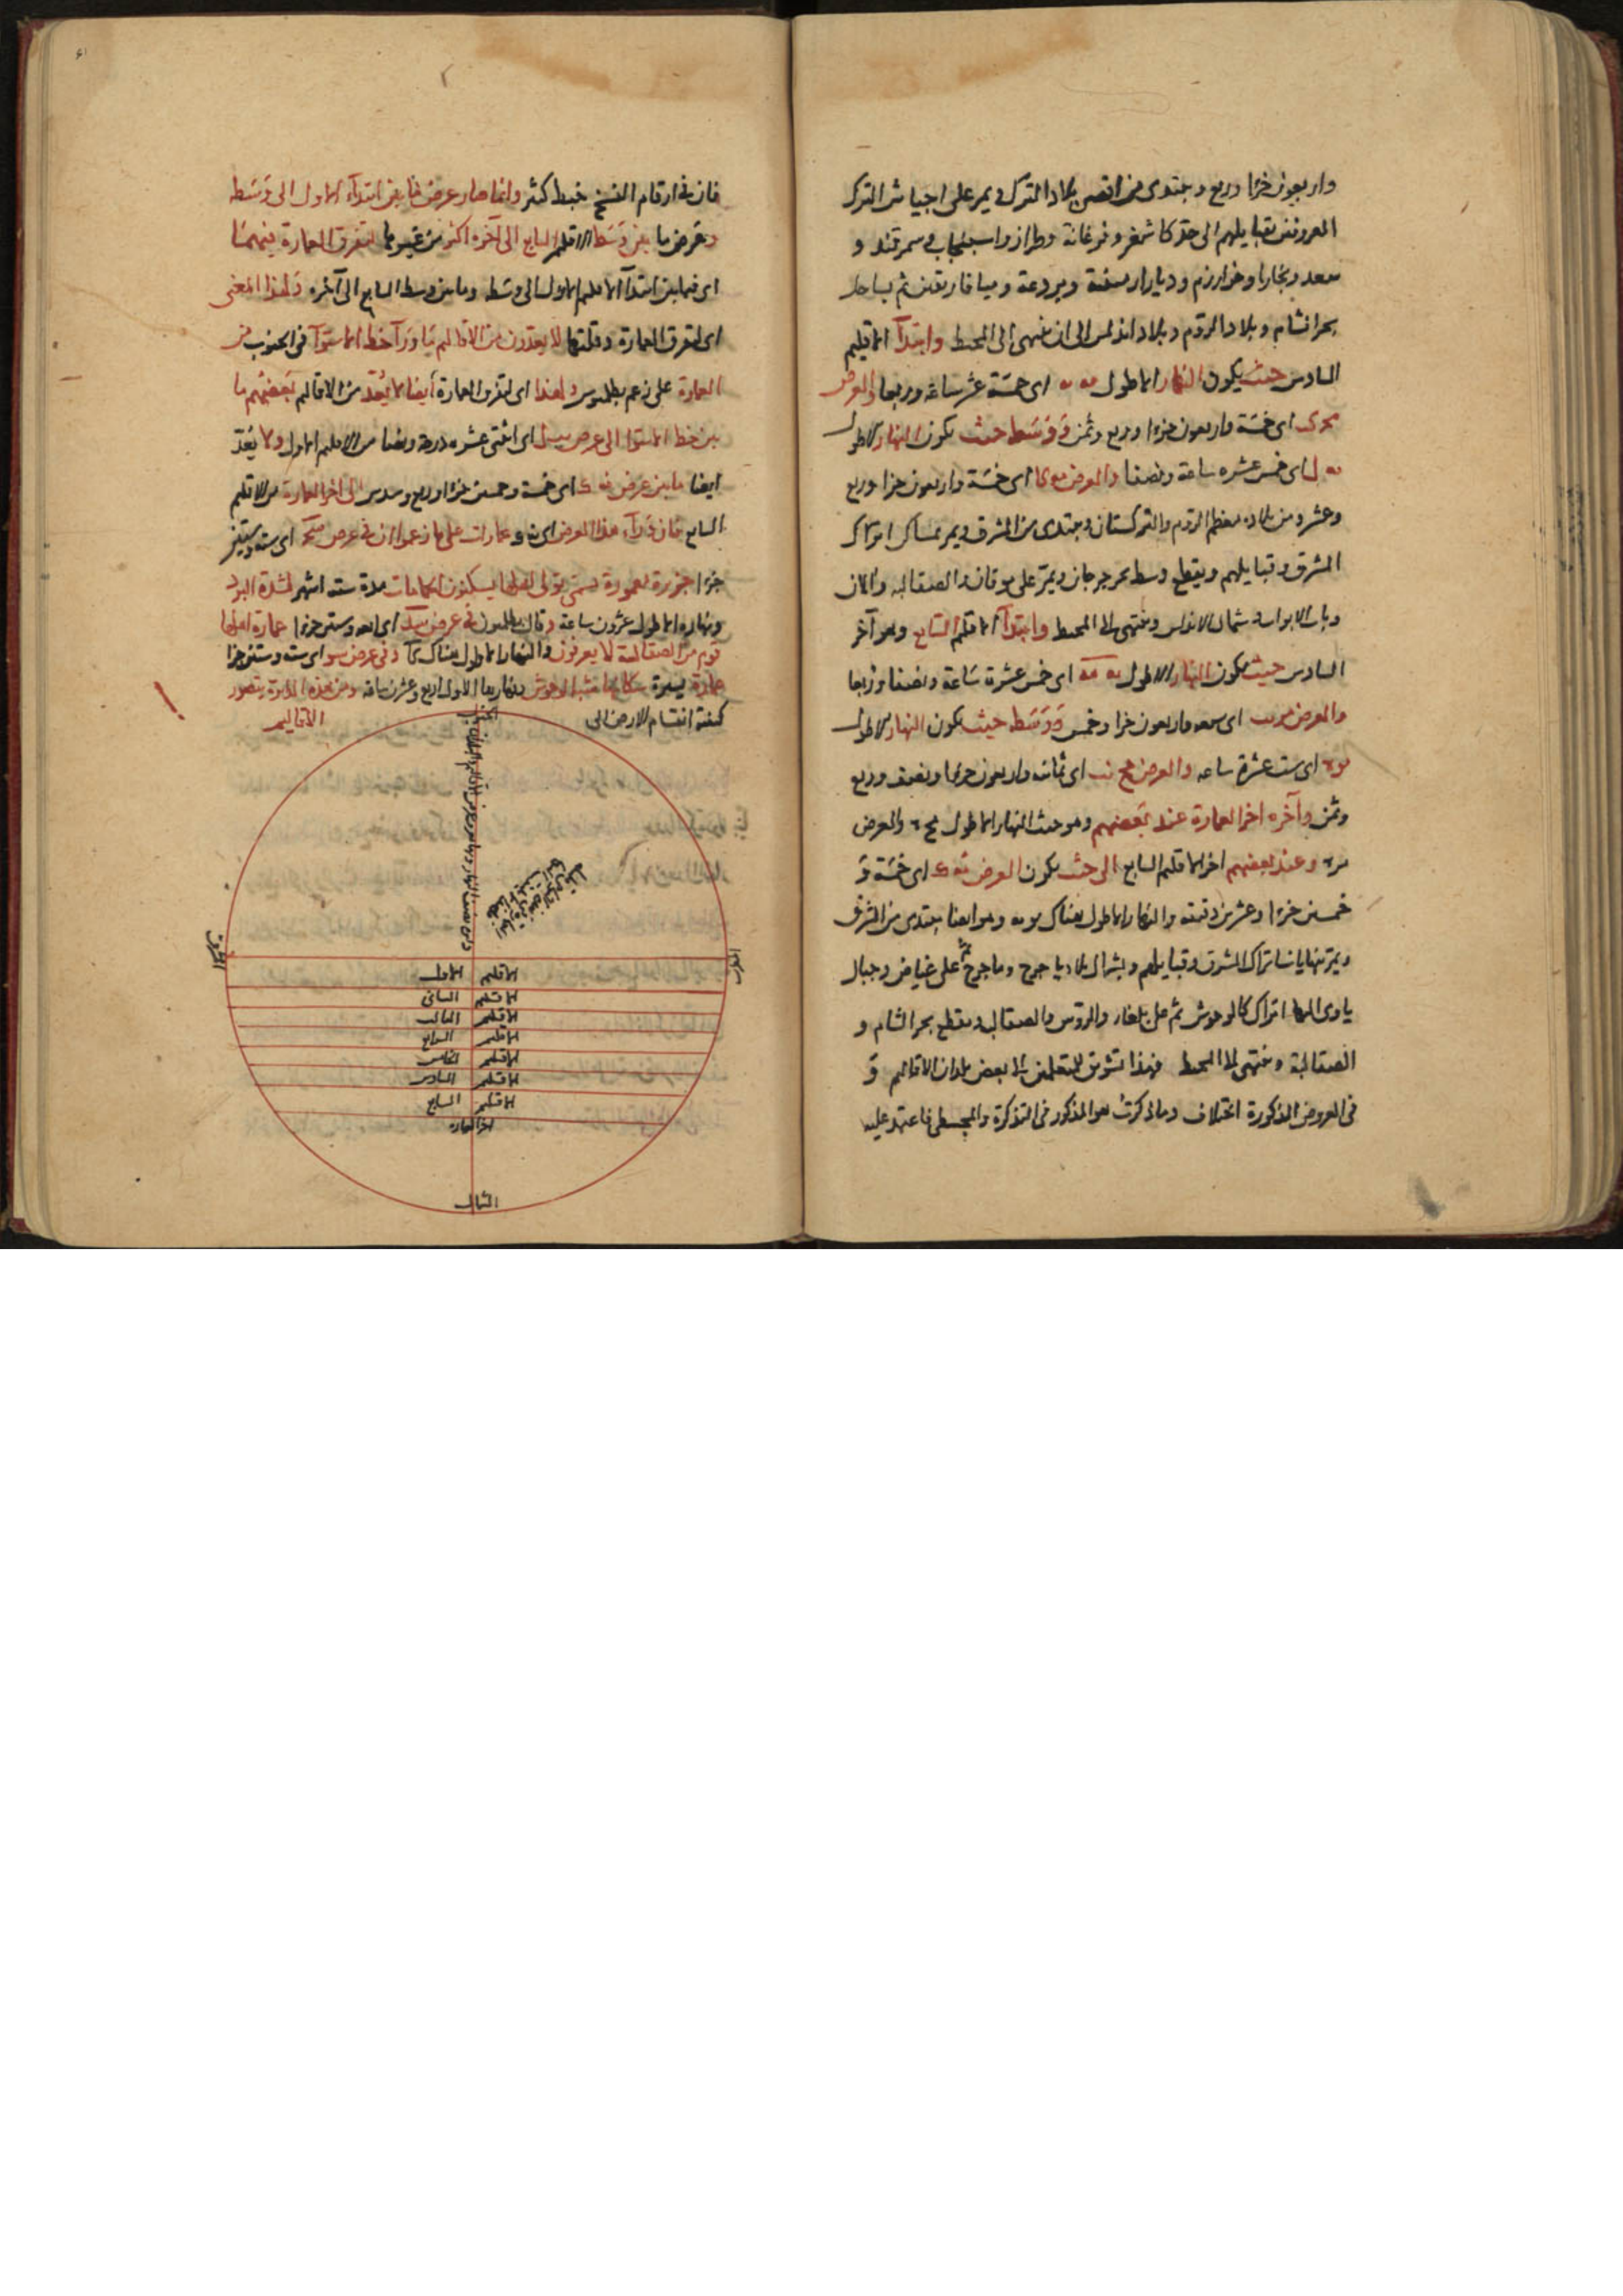 واربعون جزءا وربع ويبتدى من اقصى بلاد الترك ويمر على اجناس الترك
المعروفين بقبايلهم الى حد كاشغر وفرغانة وطراز واسبيجاب وسمرقند و
سغد وبخارا وخوارزم وديار ارمينة وبردعة وميافارقين ثم بساحل
بحر الشام وبلاد الروم وبلاد اندلس الى ان ينهى الى المحيط وابتدآ الاقليم
السادس حيث يكون النهار الاطول يه يه اى خمسة عشر ساعة وربعا والعرض
اى خمسة واربعون جزءا وربع وثمن ووسطه حيث يكون النهار الاطول
يه ل اى خمس عشره ساعة ونصفا والعرض مه كا اى خمسة واربعون جزا وربع
وعشر ومن بلاده معظم الروم والتركستان ويبتدى من المشرق ويمر بمساكن اتراك
المشرق وقبايلهم ويقطع وسط بحر جرجان ويمر على موقان والصقالبه والان
وباب الابواب وشمال الاندلس وينتهى الى المحيط وابتدآ الاقليم السابع وهو آخر
السادس حيث يكون النهار الاطول يه مه اى خمس عشرة ساعة ونصفا وربعا
والعرض مز يب اى سبعه واربعون جزا وخمس ووسطه حيث يكون النهار الاطول
يو ه اى ست عشرة ساعه والعرض مح نب اى ثمانيه واربعون جزءا ونصف وربع
وثمن وآخره اخر العمارة عند بعضهم وهو حيث النهار الاطول والعرض
وعند بعضهم اخر الاقليم السابع الى حيث يكون العرض نه ك اى خمسة و
خمسين جزءا وعشرين دقيقه والنهار الاطول هناك وهو ايضا يبتدى من المشرق
ويمر بنهايات اتراك المشرق وقبايلهم وبشمال بلاد ياجوج وماجوج ثم على غياض وجبال
ياوى اليها اتراك كالوحوش ثم على بلغار والروس والصقالبه ويقطع بحر الشام و
الصقالبة وينتهى الى المحيط فهذا تشويق للمتعلمين الى بعض بلدان الاقاليم و
فى العروض المذكورة اختلاف وما ذكرت هو المذكور فى التذكرة والمجسطى فاعتمد عليه
فان فى ارقام النسخ خبط كثير وانما صار عرض ما بين ابتدآء الاول الى وسطه
وعرض ما بين وسط الاقليم السابع الى آخره اكثر من غيرهما لتفرق العمارة فيهما
اى فيما بين ابتدآ الاقليم الاول الى وسطه وما بين وسط السابع الى آخره ولهذا المعنى
اى لتفرق العمارة وقلتها لا يعدون من الاقاليم ما ورآ خط الاستوآ فى الجنوب من
العمارة على زعم بطلميوس ولهذا اى لتفرق العمارة ايضا لا يعد من الاقاليم بعضهم ما
بين خط الاستوا الى عرض يب ل اى اثنى عشره درجة ونصفا من الاقليم الاول ولا يعد
ايضا ما بين عرض نه ك اى خمسة وخمسين جزءا وربع وسدس الى اخر العمارة من الاقليم
السابع فان ورآء هذا العرض اى نه ك عمارات على ما زعموا ان فى عرض سج اى ستين
جزءا جزيرة معمورة تسمى تولى اهلها يسكنون الحمامات مدة ستة اشهر لشدة البرد
ونهاره الاطول عشرون ساعة وقال بطلميوس فى عرض سد اى اربعه وستين جزءا عمارة اهلها
قوم من الصقالبة لا يعرفون والنهار الاطول هناك كآ وفى عرض سو اى ست وستين جزا
عمارة يسيرة سكانها شبه الوحوش ونهارها الاطول اربع وعشرين ساعة ومن هذه الدايرة يتصور
كيفية انقسام الارض الى الاقاليم
الجنوب
المشرق
المغرب
الاقليم الاول
الاقليم الثانى
الاقليم الثالث
الاقليم الرابع
الاقليم الخامس
الاقليم السادس
الاقليم السابع
اخر العماره
الشمال